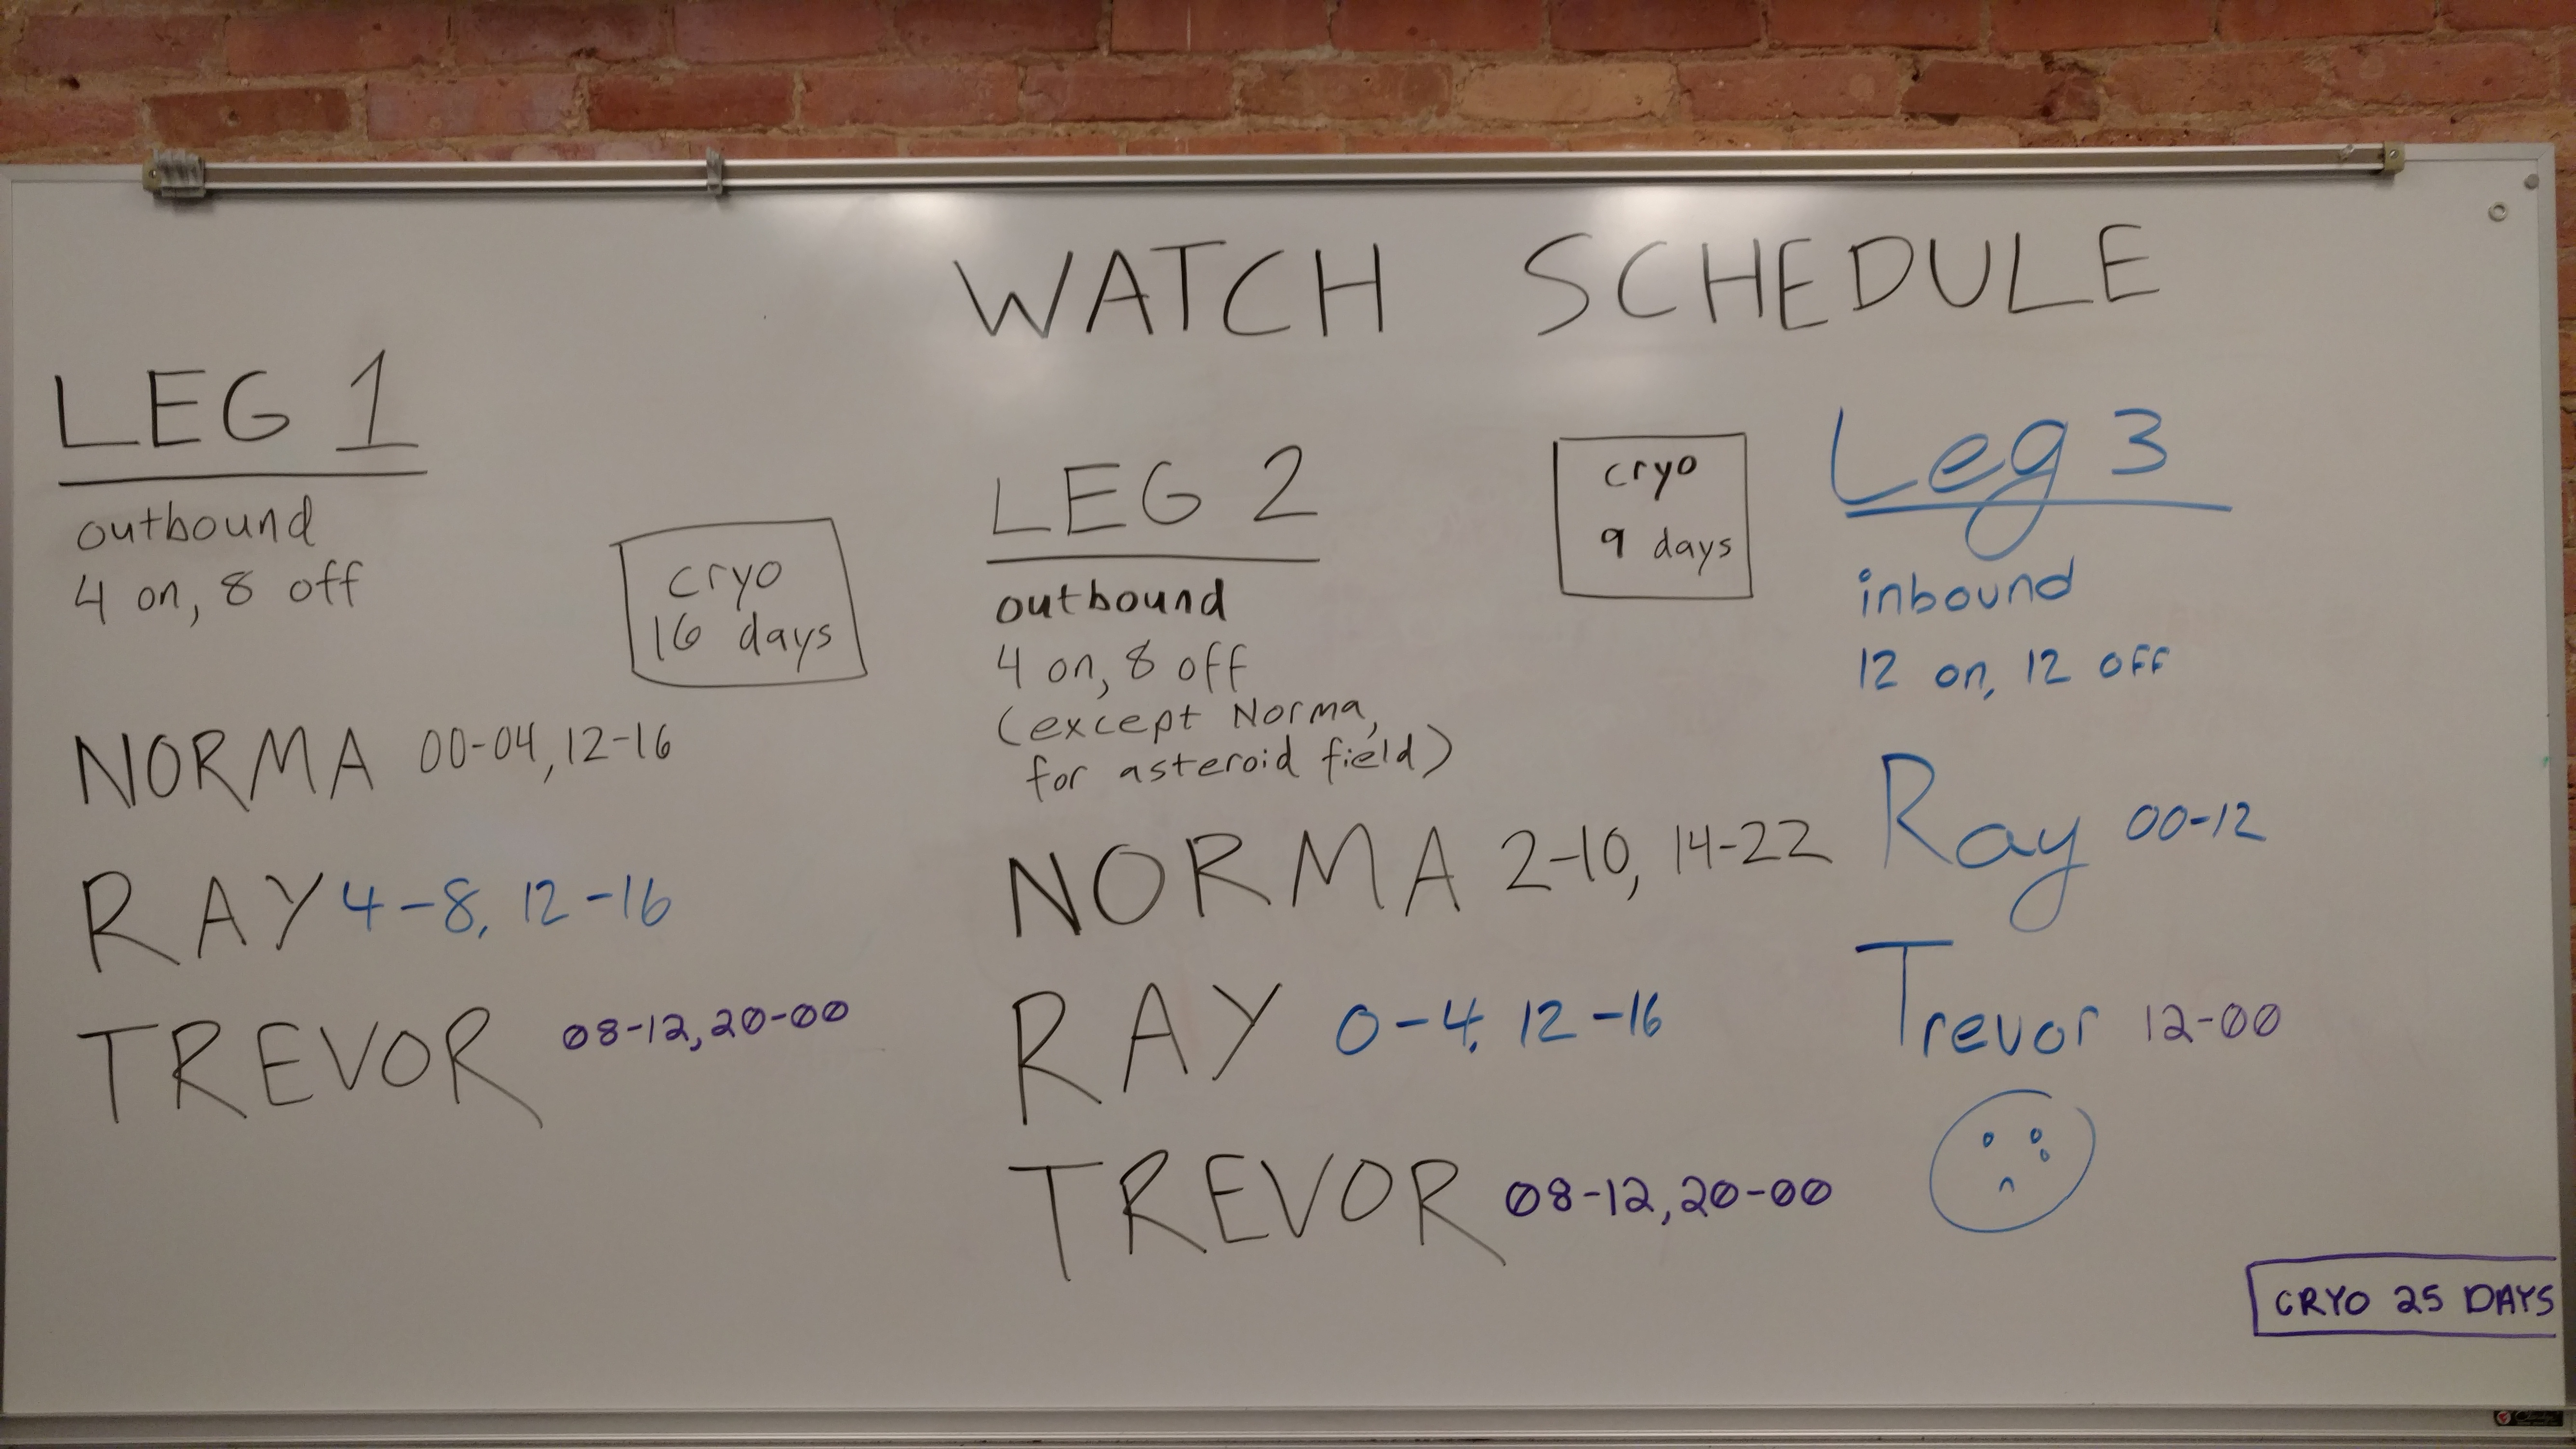 WATCH SCHEDULE
LEG 1
outbound
4 on, 8 off
cryo
16 days
NORMA 00-04, 12-16
RAY 4-8, 12-16
TREVOR 08-12, 20-00
LEG 2
outbound
4 on, 8 off
(except Norma,
for asteroid field)
NORMA 2-10, 14-22
RAY 0-4, 12-16
TREVOR 08-12, 20-00
cryo
9 days
Leg 3
inbound
12 on, 12 off
Ray 00-12
Trevor 12-00
CRYO 25 DAYS